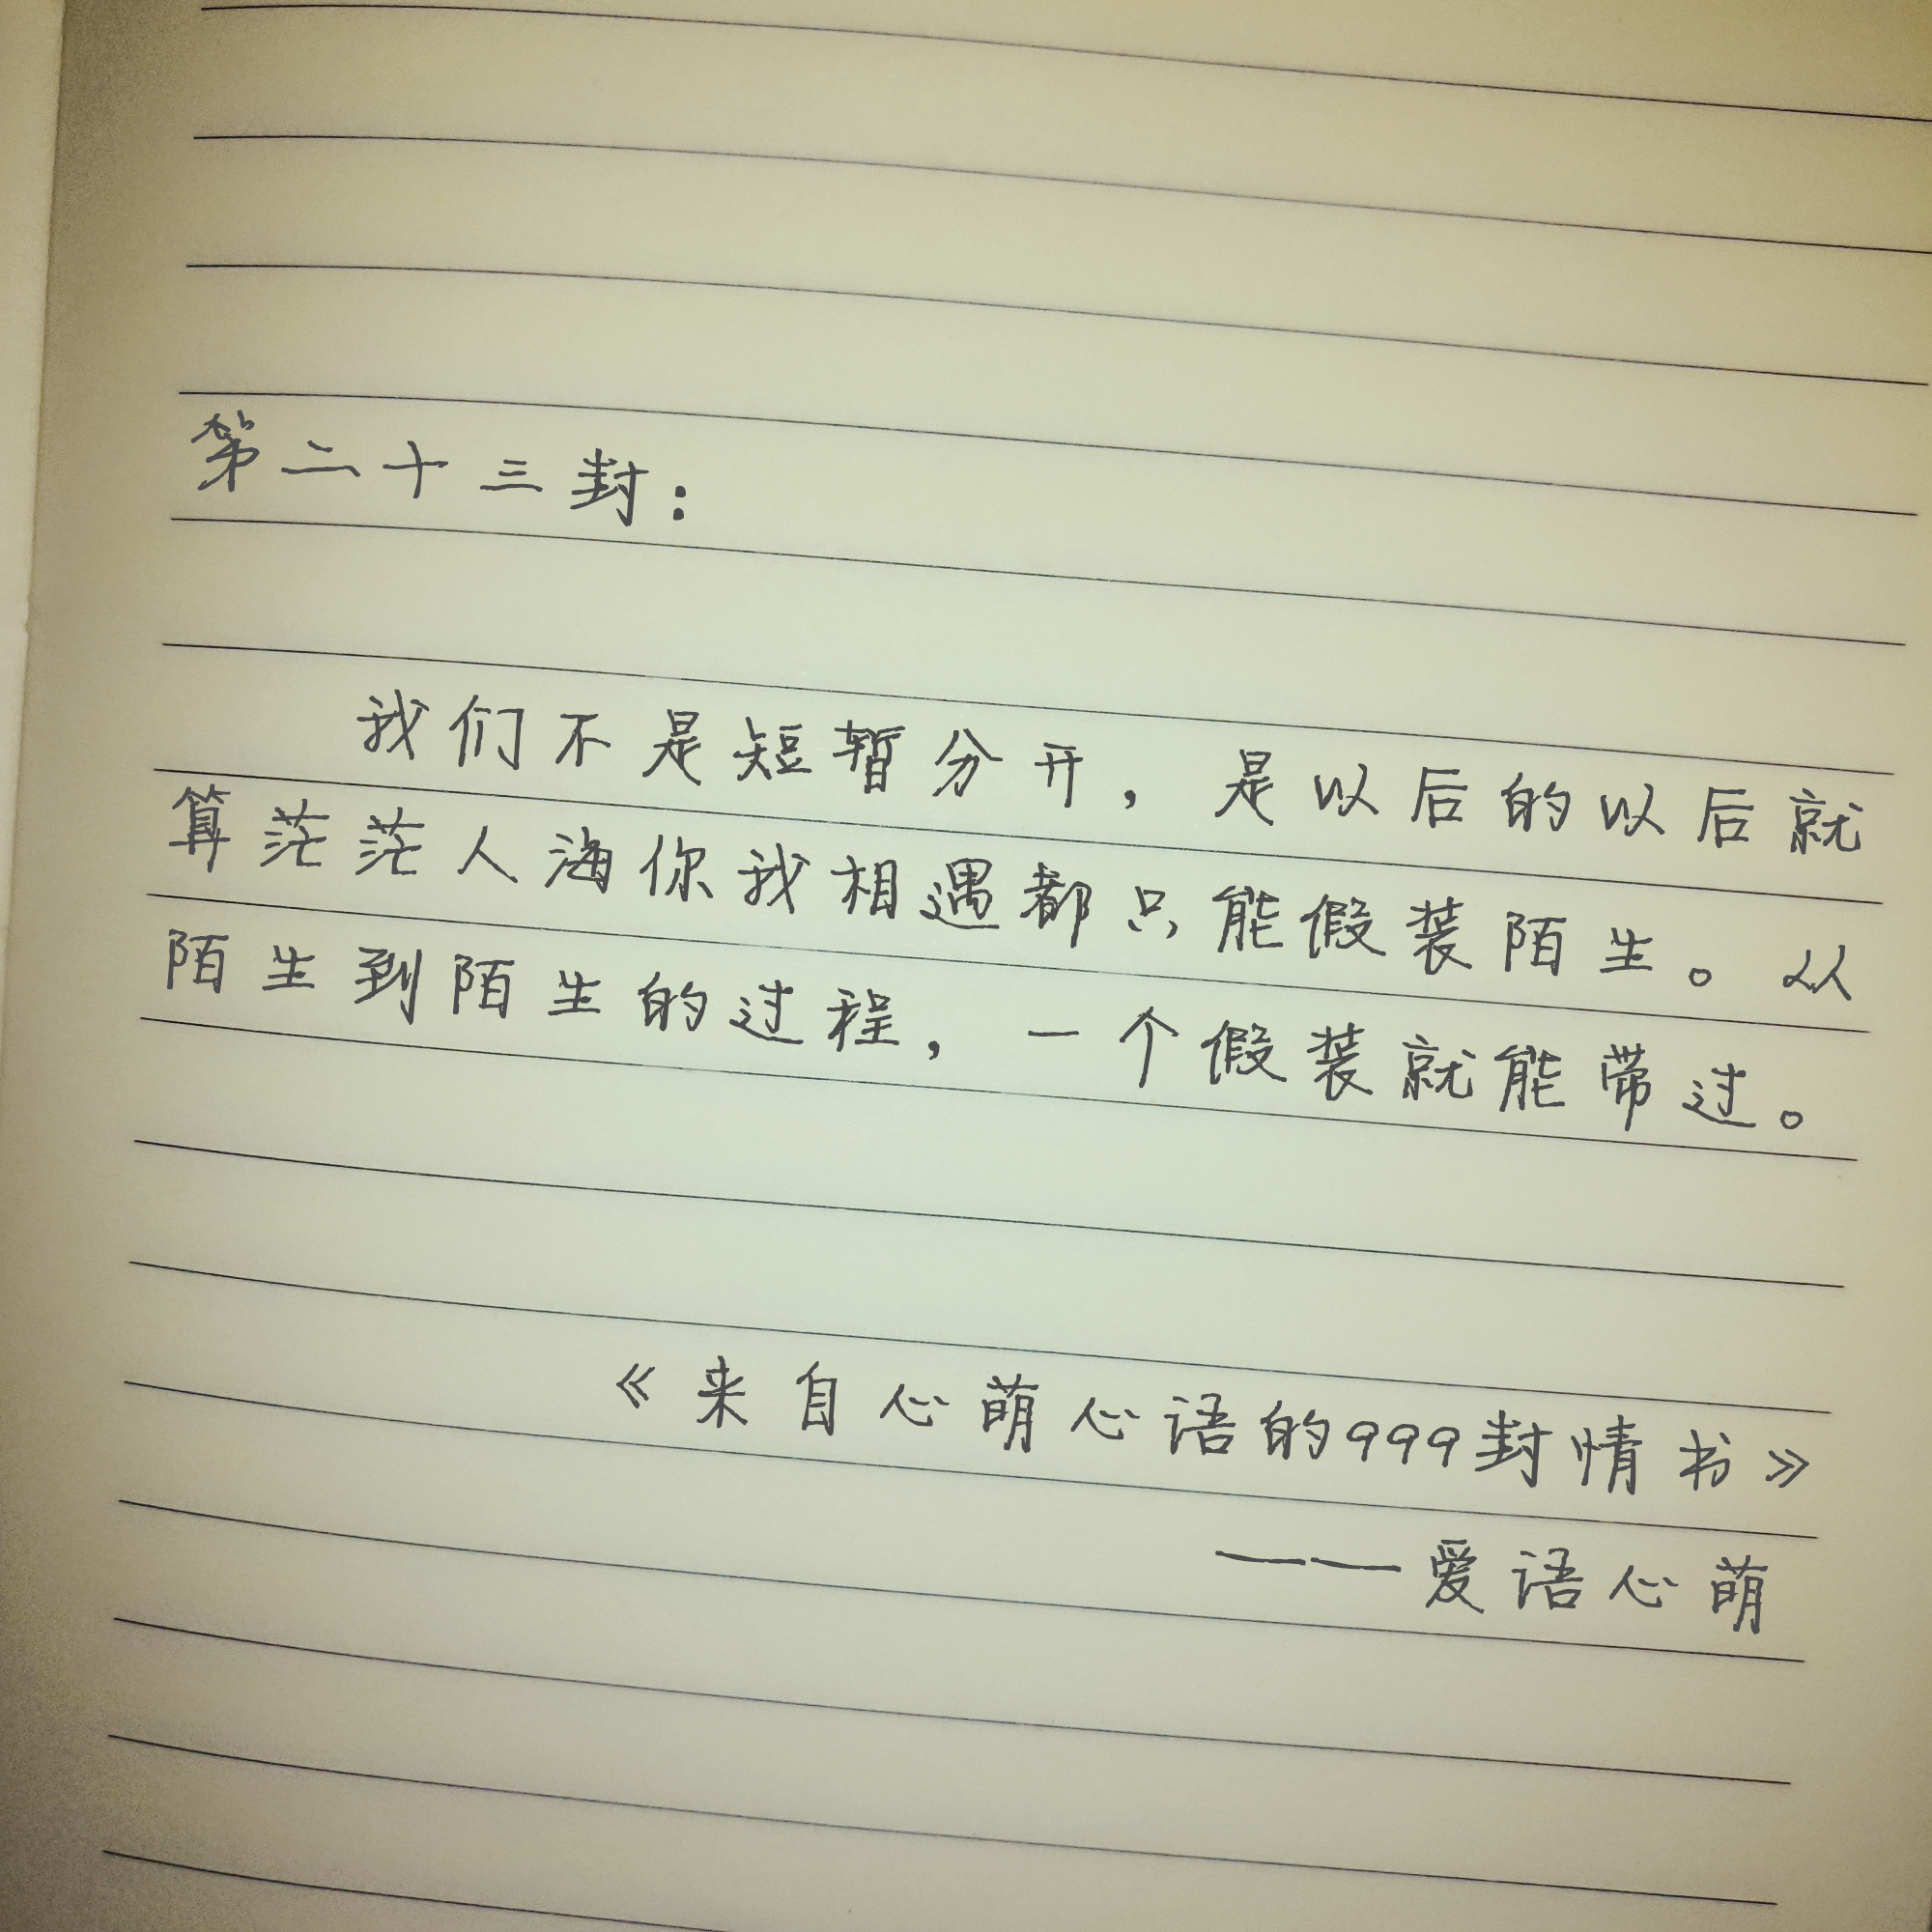 第二十三封：
我们不是短暂分开，是以后的以后就
算茫茫人海你我相遇都只能假装陌生。从
陌生到陌生的过程，一个假装就能带过。
《来自心萌心语的999封情书》
——爱语心萌